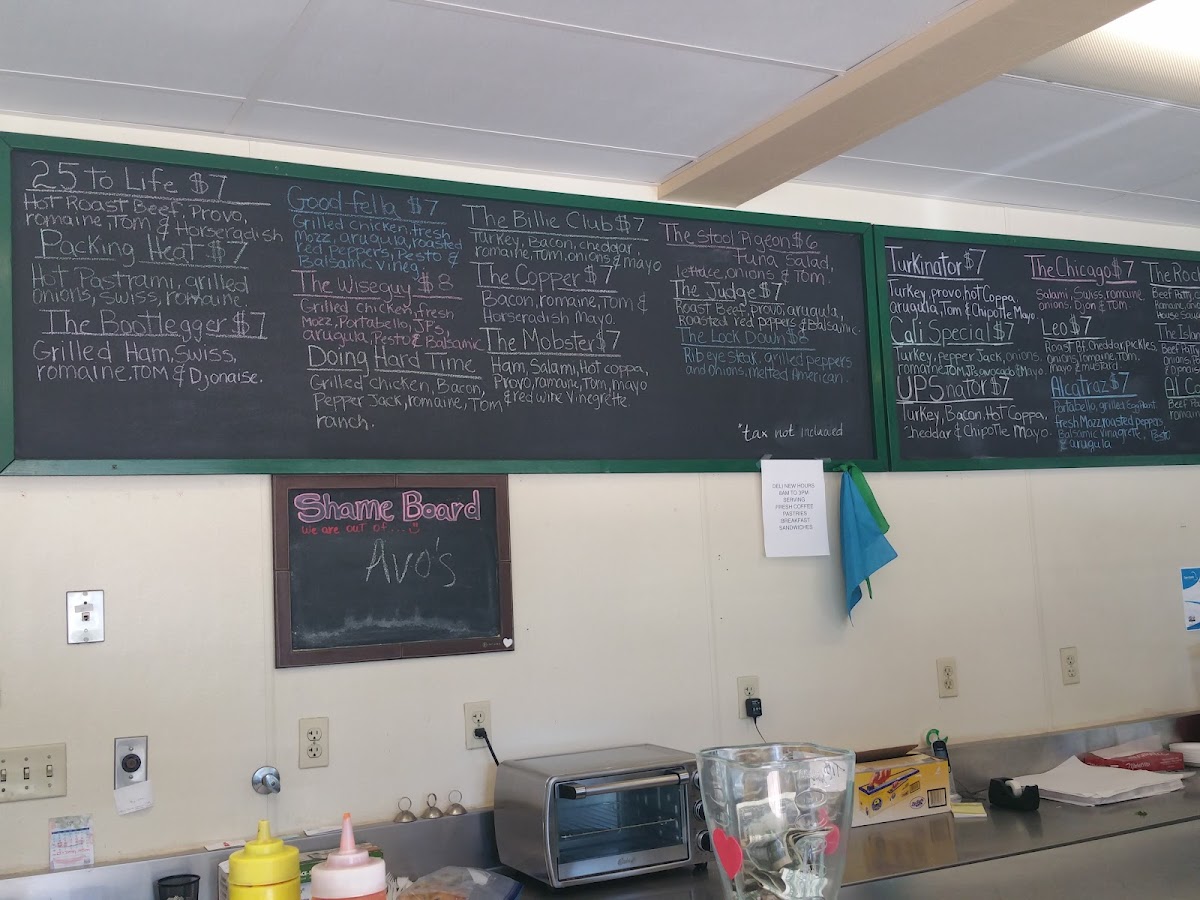 25 to Life $7
Hot Roast Beef, Provo,
romaine, Tom & Horseradish
Packing Heat $7
Hot Pastrami, grilled
onions, swiss, romaine
The Bootlegger $7
Grilled Ham, Swiss,
romaine, TOM & Djonaise.
Good fella $7
Grilled chicken, fresh
Mozz, arugula, roasted
red peppers, Pesto &
Balsamic vineg.
The Wiseguy $8
Grilled chicken, fresh
Mozz, Portabello, JP's,
arugula, Pesto & Balsamic
Doing Hard Time
Grilled Chicken, Bacon,
Pepper Jack, romaine, TOM
ranch.
The Billie Club $7
Turkey, Bacon, cheddar,
romaine, Tom, onions & mayo
The Copper $7
Bacon, romaine, Tom &
Horseradish Mayo.
The Mobster $7
Ham, Salami, Hot coppa,
Provo, romaine, Tom, mayo
& red wine Vinegrette.
The Stool Pigeon $6
Tuna Salad,
lettuce, onions & Tom.
The Judge $7
Roast Beef, provo, arugula,
Roasted red peppers & Balsamic.
The Lock Down $8
Rib eye Steak, grilled peppers
and onions, melted American.
*tax not included
Turkinator $7
Turkey, provo, hot Coppa,
arugula, Tom & Chipotle Mayo
Cali Special $7
Turkey, pepper Jack, onions,
romaine, TOM, JPs, avocado & Mayo.
UPSnator $7
Turkey, Bacon, Hot Coppa,
Cheddar & Chipotle Mayo.
The Chicago $7
Salami, Swiss, romaine
onions & Tom
Leo $7
Roast Bf, Cheddar, Pickles,
onions, romaine, Tom,
mayo & mustard
Alcatraz $7
Portabello, grilled Eggplant
fresh Mozz, roasted peppers,
Balsamic vinagrette, Pesto
& arugula
The
Beef
House
The
Beef
Al
Beef
Shame Board
we are out of...
Avo's
DELI NEW HOURS
8AM TO 3PM
SERVING
FRESH COFFEE
PASTRIES
BREAKFAST
SANDWICHES